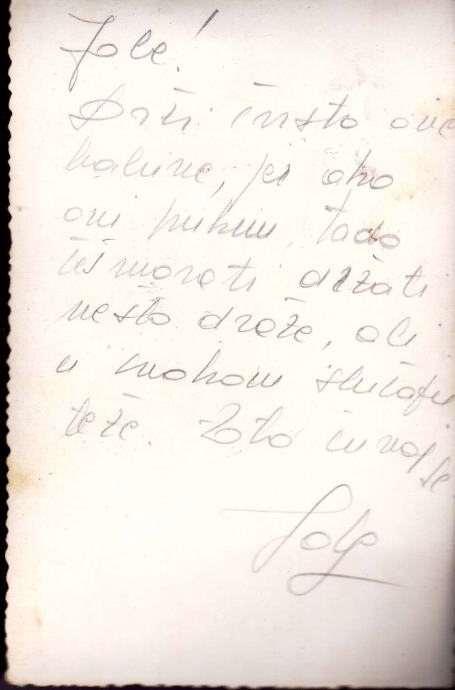 Jole!
Drži čvrsto ove
balune, jer ako
oni puknu, tada
ćeš morati držati
nešto draže, ali
u svakom slučaju
teže. Zato čuvaj se